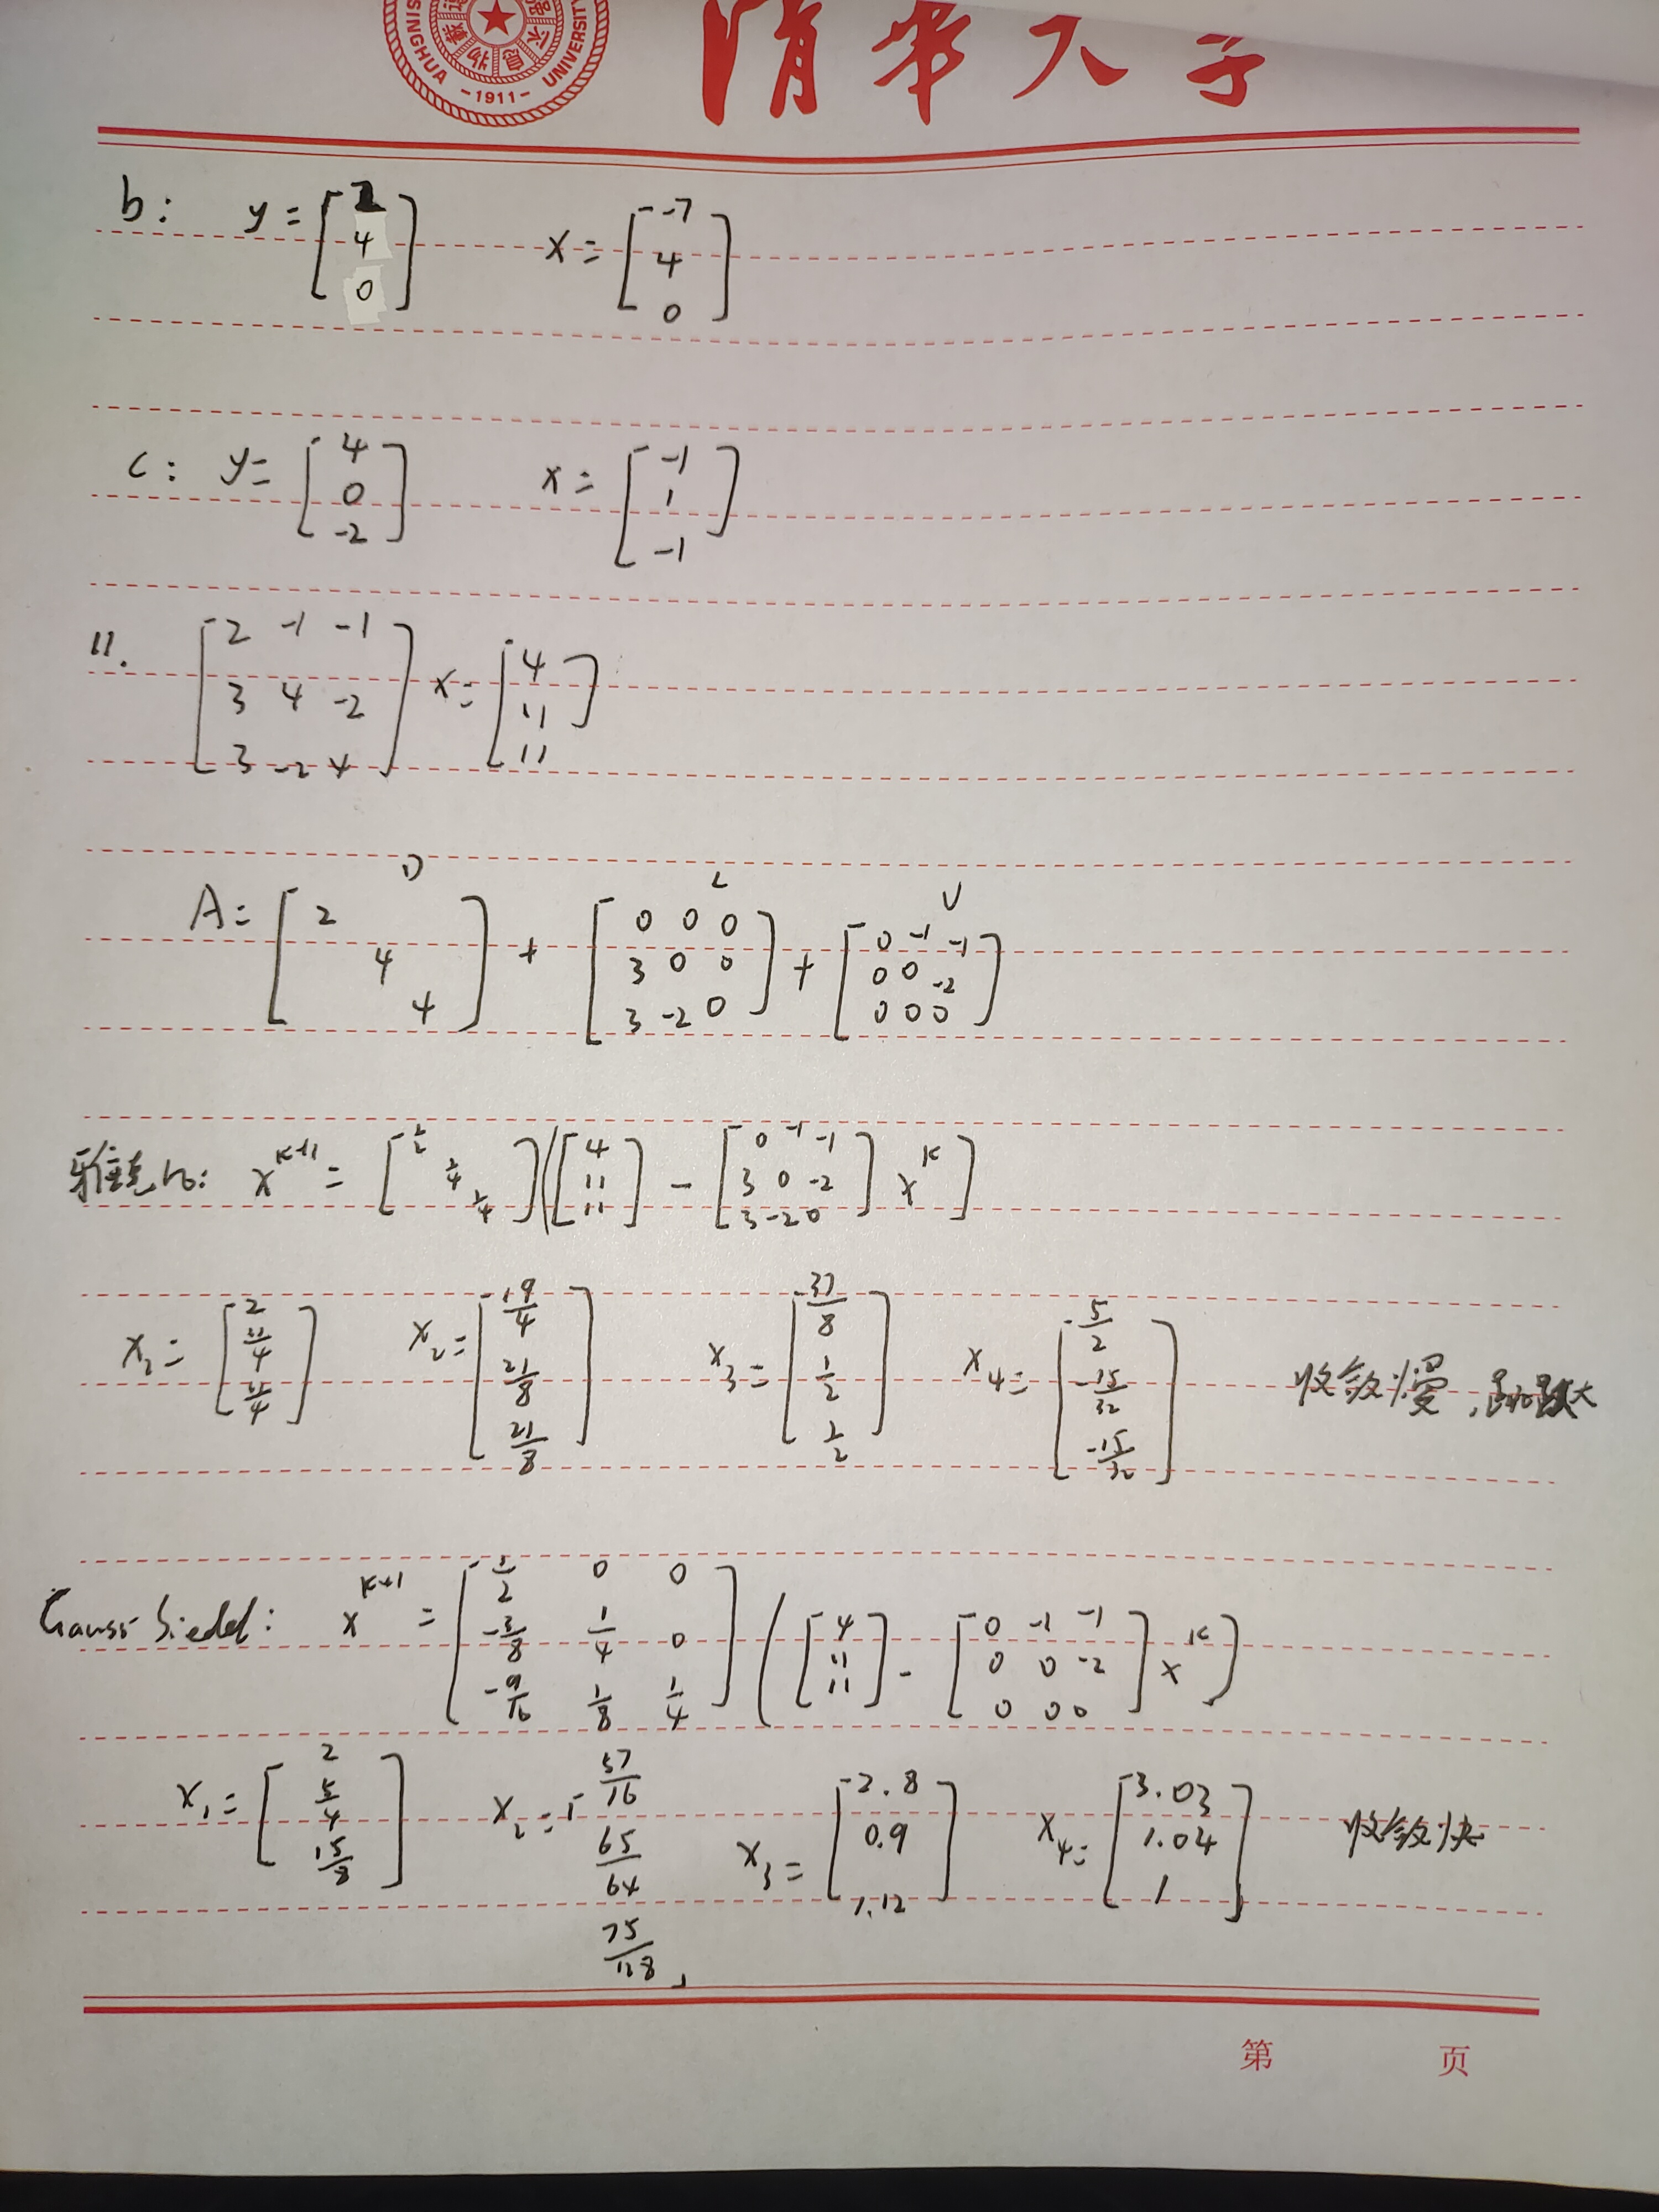 TSINGHUA UNIVERSITY -1911-
清华大学
b: y = [2 4 0] x = [-7 4 0]
c: y = [4 0 -2] x = [-1 1 -1]
11. [2 -1 -1
3 4 -2
3 -2 4] x = [4 11 11]
D L U
A = [2
4
4] + [0 0 0
3 0 0
3 -2 0] + [0 -1 -1
0 0 -2
0 0 0]
雅克比: x^{k+1} = [1/2
1/4
1/4] ([4 11 11] - [0 -1 -1
3 0 -2
3 -2 0] x^k)
x_1 = [2 11/4 11/4] x_2 = [19/4 21/8 21/8] x_3 = [37/8 1/2 1/2] x_4 = [5/2 -15/32 -15/32] 收敛慢,
Gauss-Siedel: x^{k+1} = [1/2 0 0
-3/8 1/4 0
-9/16 1/8 1/4] ([4 11 11] - [0 -1 -1
0 0 -2
0 0 0] x^k)
x_1 = [2 5/4 15/8] x_2 = [57/16 65/64 75/128] x_3 = [2.8 0.9 1.12] x_4 = [3.03 1.04 1] 收敛快
第 页